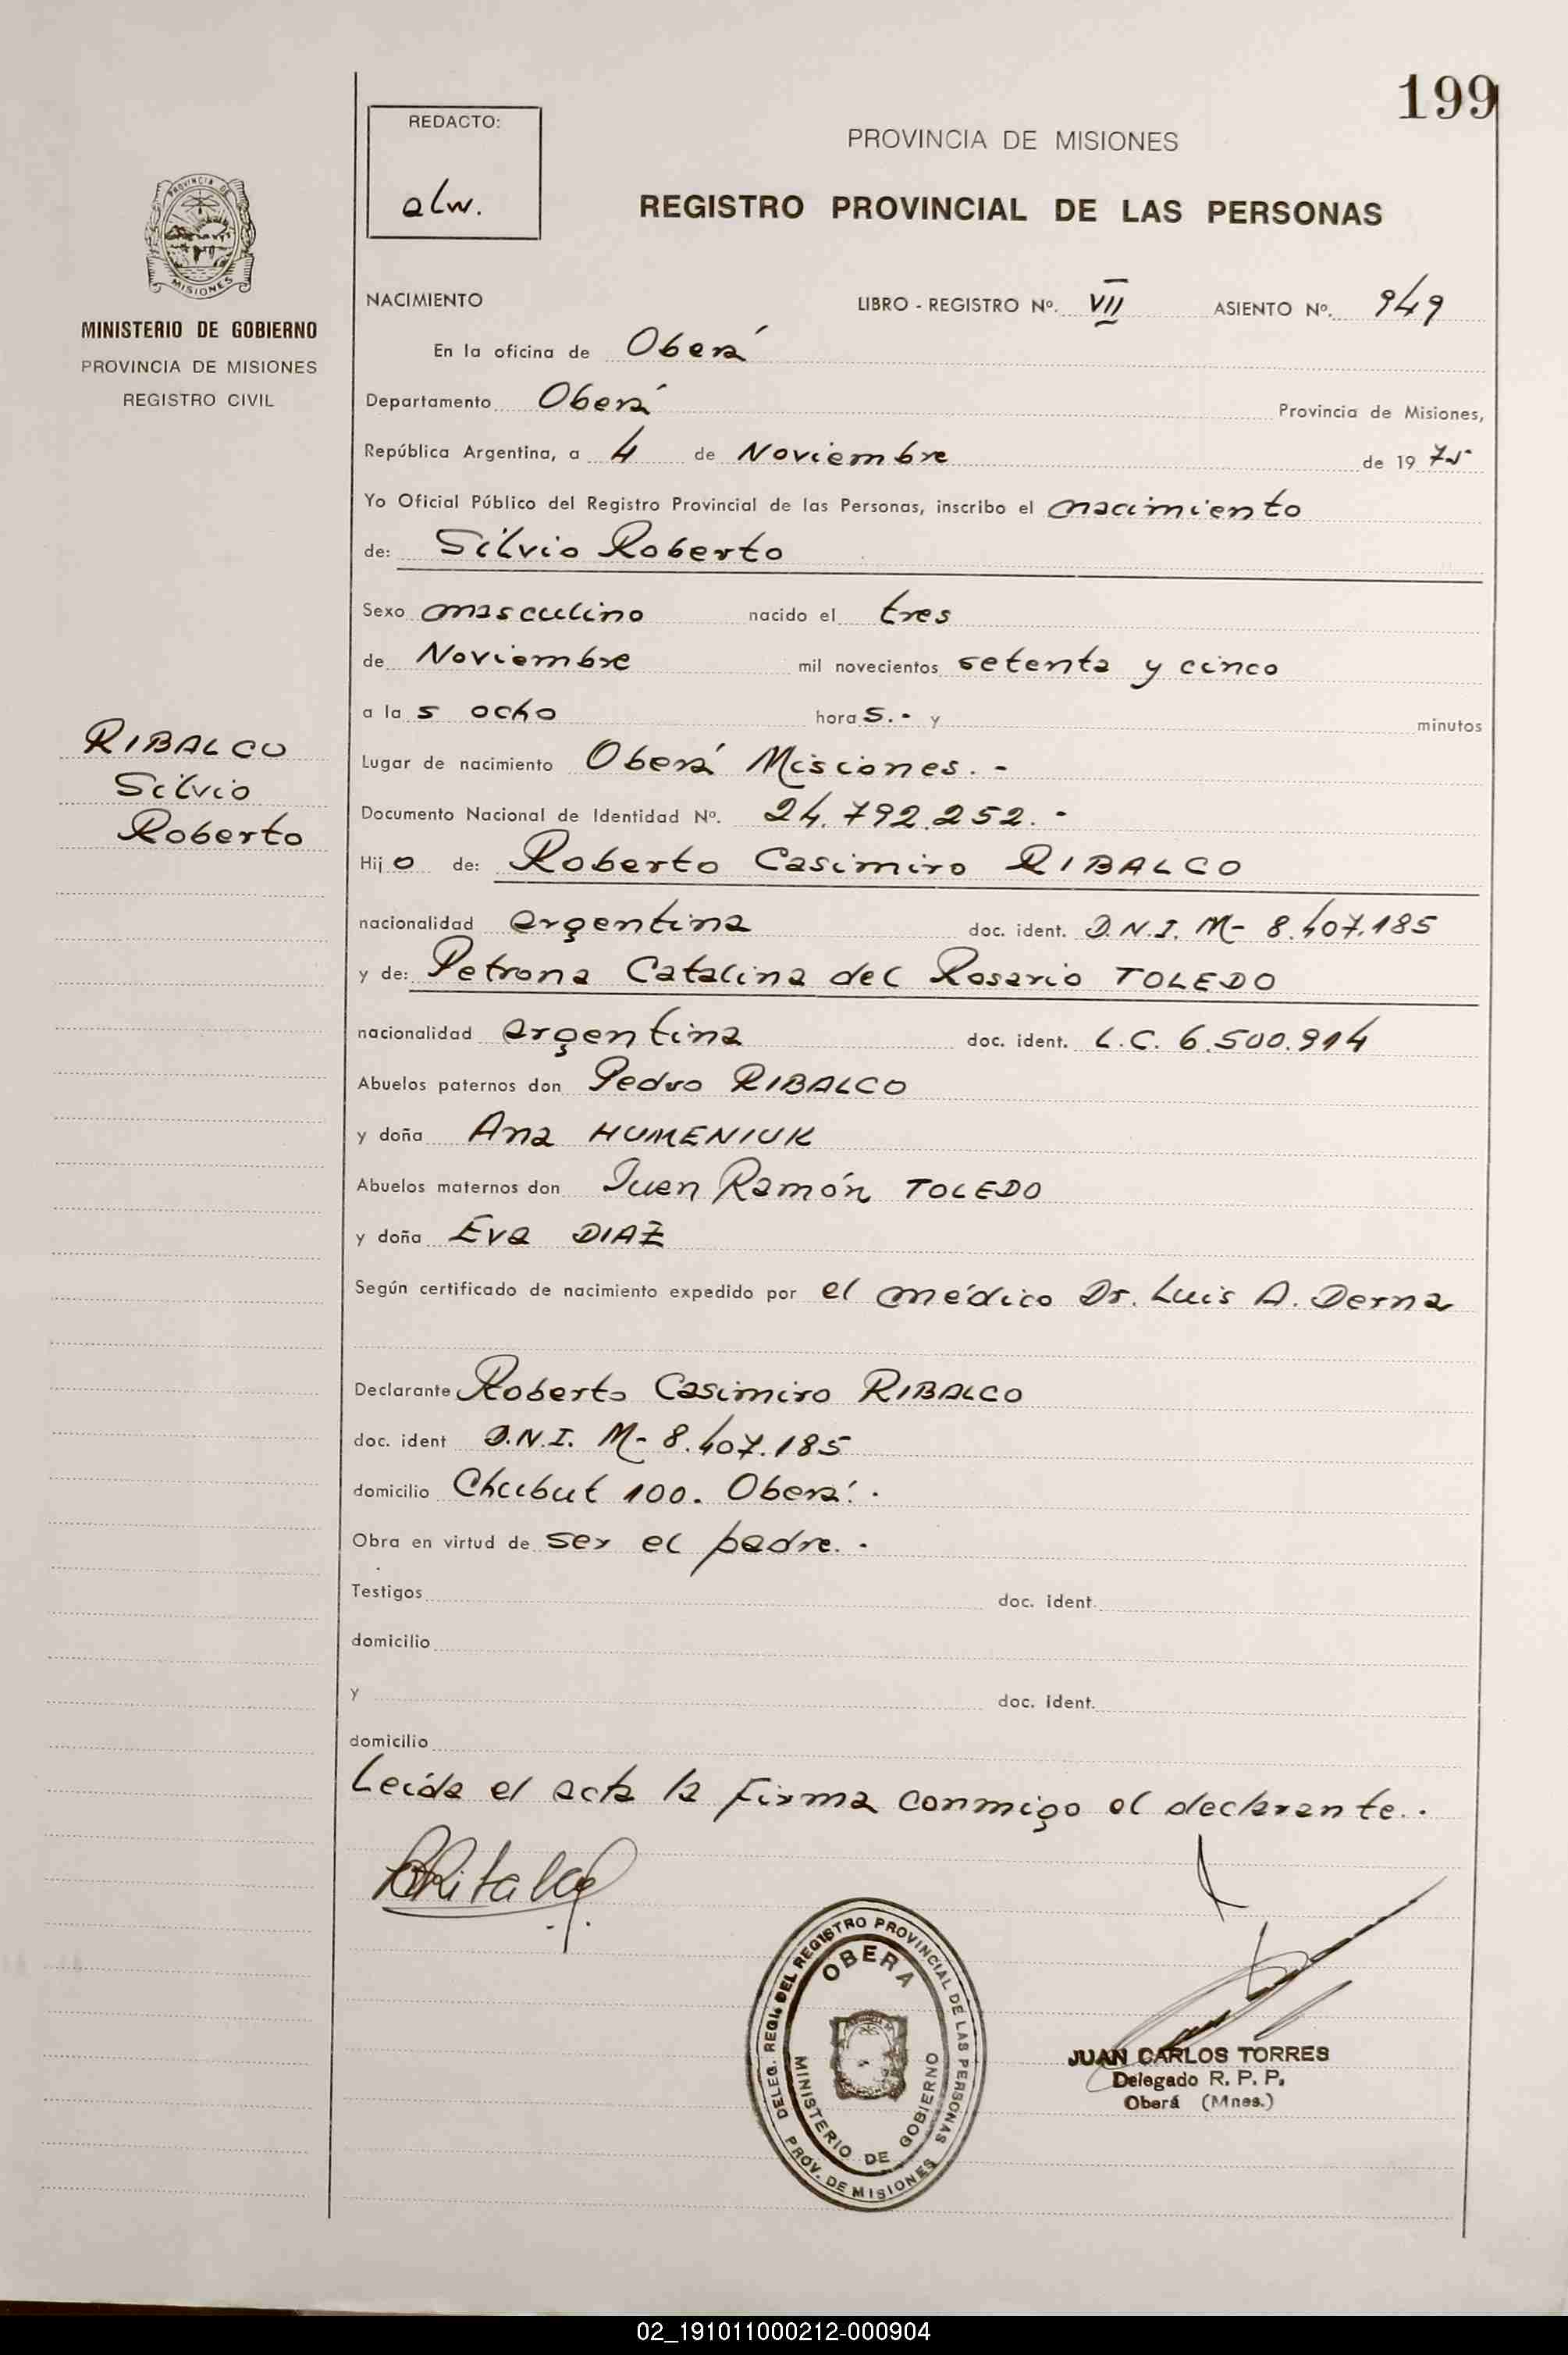 199
REDACTO:
alw.
PROVINCIA DE MISIONES
REGISTRO PROVINCIAL DE LAS PERSONAS
PROVINCIA DE
MISIONES
MINISTERIO DE GOBIERNO
PROVINCIA DE MISIONES
REGISTRO CIVIL
NACIMIENTO LIBRO - REGISTRO Nº. VII ASIENTO Nº. 949
En la oficina de Oberá
Departamento Oberá Provincia de Misiones,
República Argentina, a 4 de Noviembre de 1975
Yo Oficial Público del Registro Provincial de las Personas, inscribo el nacimiento
de: Silvio Roberto
Sexo masculino nacido el tres
de Noviembre mil novecientos setenta y cinco
a las ocho horas.- y minutos
RIBALCO
Silvio
Roberto
Lugar de nacimiento Oberá Misiones.-
Documento Nacional de Identidad Nº. 24.792.252.-
Hijo de: Roberto Casimiro RIBALCO
nacionalidad argentina doc. ident. D.N.I. M- 8.407.185
y de: Petrona Catalina del Rosario TOLEDO
nacionalidad argentina doc. ident. L.C. 6.500.914
Abuelos paternos don Pedro RIBALCO
y doña Ana HUMENIUK
Abuelos maternos don Juan Ramón TOLEDO
y doña Eva DIAZ
Según certificado de nacimiento expedido por el médico Dr. Luis A. Derna
Declarante Roberto Casimiro RIBALCO
doc. ident D.N.I. M- 8.407.185
domicilio Chubut 100. Oberá.-
Obra en virtud de ser el padre.-
Testigos doc. ident.
domicilio
y doc. ident.
domicilio
Leída el acta la firma conmigo el declarante..
DELEG. REGL. DEL REGISTRO PROVINCIAL DE LAS PERSONAS
OBERA
MINISTERIO DE GOBIERNO
PROV. DE MISIONES
JUAN CARLOS TORRES
Delegado R. P. P.
Oberá (Mnes.)
02_191011000212-000904